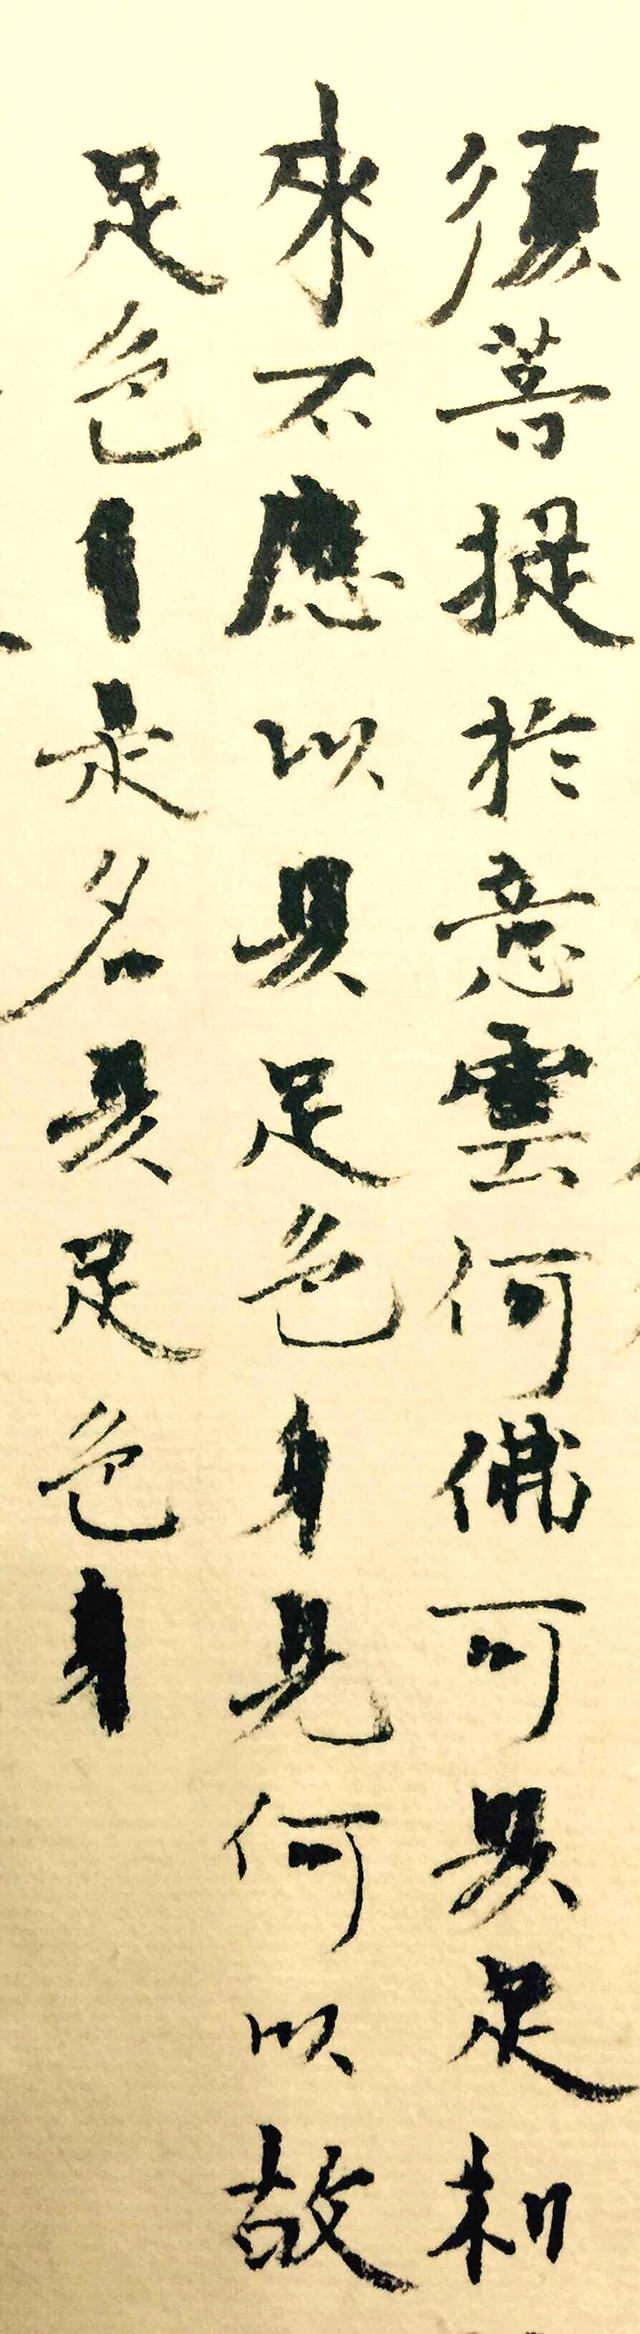 須菩提於意雲何佛可具足
來不應以具足色身見何以故
足色身是名具足色身